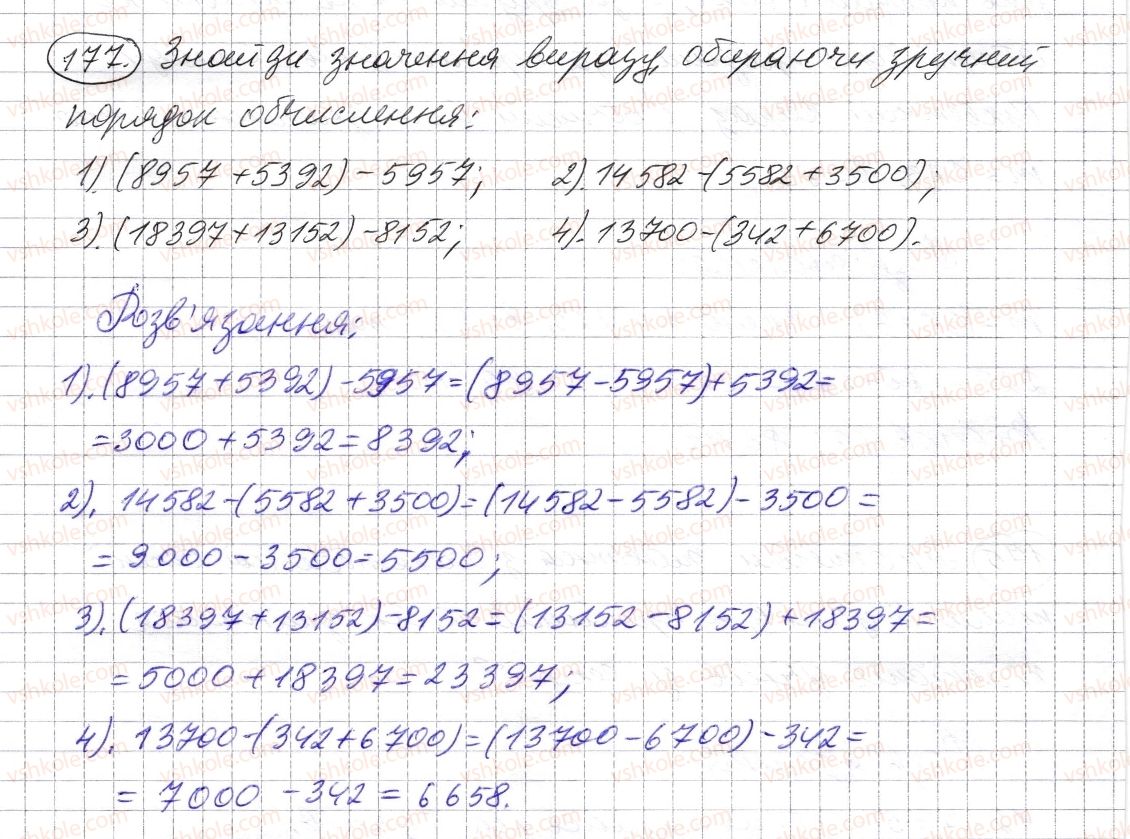 177. Знайди значення виразу, обираючи зручний
порядок обчислення:
1). (8957 + 5392) - 5957; 2). 14582 - (5582 + 3500);
3). (18397 + 13152) - 8152; 4). 13700 - (342 + 6700).
Розв'язання:
1). (8957 + 5392) - 5957 = (8957 - 5957) + 5392 =
= 3000 + 5392 = 8392;
2). 14582 - (5582 + 3500) = (14582 - 5582) - 3500 =
= 9000 - 3500 = 5500;
3). (18397 + 13152) - 8152 = (13152 - 8152) + 18397 =
= 5000 + 18397 = 23397;
4). 13700 - (342 + 6700) = (13700 - 6700) - 342 =
= 7000 - 342 = 6658.